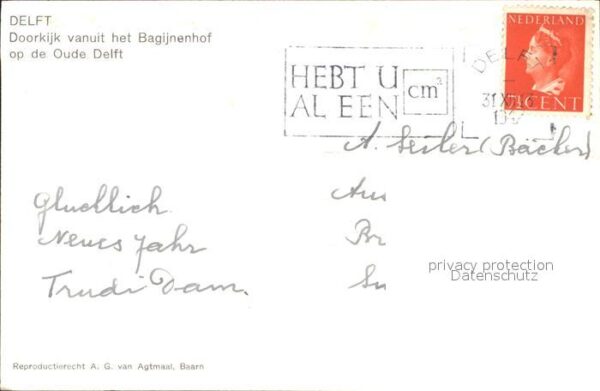 DELFT
Doorkijk vanuit het Bagijnenhof
op de Oude Delft
NEDERLAND
CENT
DELFT
HEBT U
AL EEN
cm²
31 XII
A. Seiler (Bäcker)
Gluecklich
Neues Jahr
Trudi Dam.
privacy protection
Datenschutz
Reproductierecht A. G. van Agtmaal, Baarn